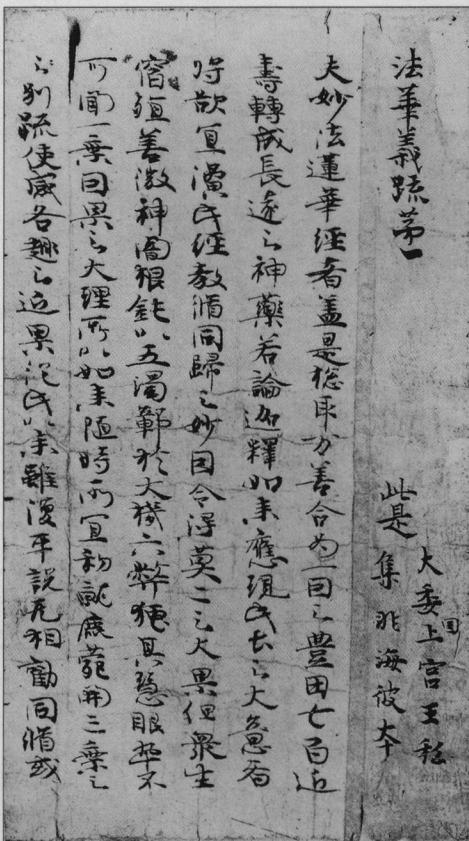 法華義疏第一
此是
大委國上宮王私
集非海彼本
夫妙法蓮華經者盖是惣取万善合為一因之豊田七百近
壽轉成長遠之神藥若論迦釋如来應現此土之大意者
将欲宜演此經教脩同歸之妙因令得莫二之大果但衆生
宿殖善微神闇根鈍以五濁鄣於大機六弊掩其慧眼卒不
可聞一乗因果之大理所以如来随時所宜初就鹿苑開三乗之
之別疏使感各趣之近果従此以来雖復平説无相勸同脩或